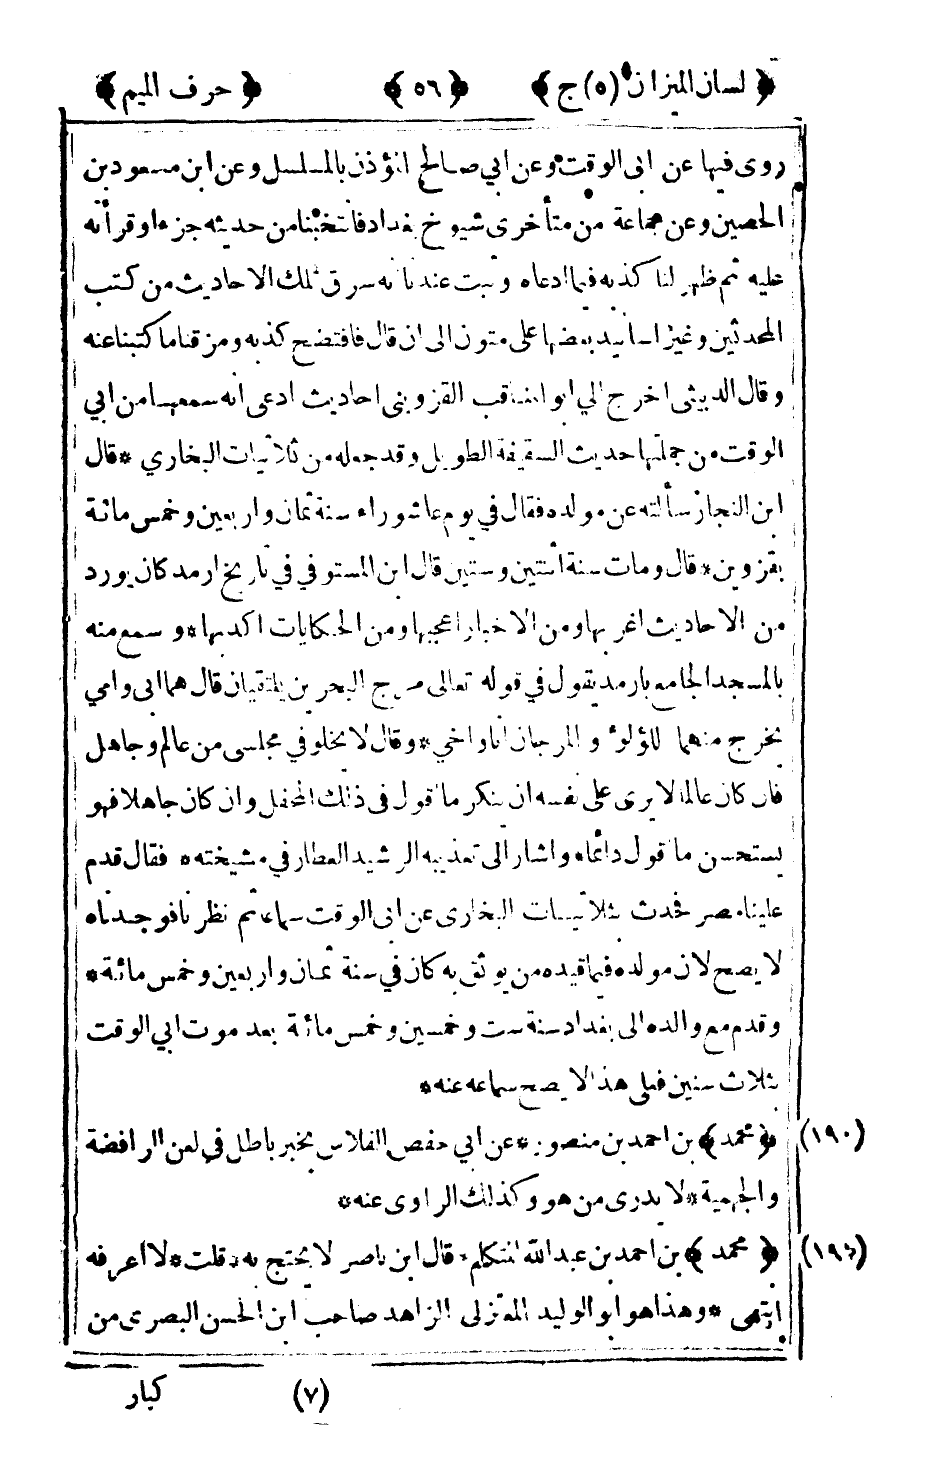 ﴿ لسان الميزان (٥) ج ﴾ ﴿ ٥٦ ﴾ ﴿ حرف الميم ﴾
روى فيها عن ابى الوقت وعن ابي صالح المؤذن بالمسلسل وعن ابن مسعود بن
الحصين وعن جماعة من متأخرى شيوخ بغداد فانتخبنا من حديثه جزء او قرأته
عليه ثم ظهر لنا كذبه فيما ادعاه وثبت عندنا انه سرق تلك الاحاديث من كتب
المحدثين وغير اسانيد بعضها على متون الى ان قال فافتضح كذبه ومزقنا ما كتبنا عنه
وقال الدبيثى اخرج الي ابو المناقب القزوينى احاديث ادعى انه سمعها من ابي
الوقت من جملتها حديث السقيفة الطويل وقد جعله من ثلاثيات البخاري * قال
ابن النجار سألته عن مولده فقال في يوم عاشوراء سنة ثمان واربعين وخمس مائة
بقزوين * قال ومات سنة اثنتين وستين قال ابن المستوفي في تاريخ ارمد كان يورد
من الاحاديث اغربها ومن الاخبار اعجبها ومن الحكايات اكذبها * وسمع منه
بالمسجد الجامع بارمد يقول في قوله تعالى مرج البحرين يلتقيان قال هما ابى وامي
يخرج منهما اللؤلؤ والمرجان انا واخي * وقال لا يخلو في مجلسى من عالم وجاهل
فان كان عالما لا يرى على نفسه ان ينكر ما قول فى ذلك المحفل وان كان جاهلا فهو
يستحسن ما قول دائما * واشار الى تعذيبه الرشيد العطار في مشيخته * فقال قدم
علينا مصر فحدث بثلاثيات البخارى عن ابى الوقت سماعا ثم نظرنا فوجدناه
لا يصح لان مولده فيما قيده من يوثق به كان في سنة ثمان واربعين وخمس مائة *
وقدم مع والده الى بغداد سنة ست وخمسين وخمس مائة بعد موت ابي الوقت
بثلاث سنين فعلى هذا لا يصح سماعه عنه *
(١٩٠) ﴿ محمد ﴾ بن احمد بن منصور * عن ابي حفص الفلاس بخبر باطل في لعن الرافضة
والجهمية * لا يدرى من هو وكذلك الراوى عنه *
(١٩١) ﴿ محمد ﴾ بن احمد بن عبد الله المتكلم * قال ابن ناصر لا يحتج به * قلت * لا اعرفه
انتهى * وهذا هو ابو الوليد المعتزلى الزاهد صاحب ابن الحسن البصرى من
(٧) كبار